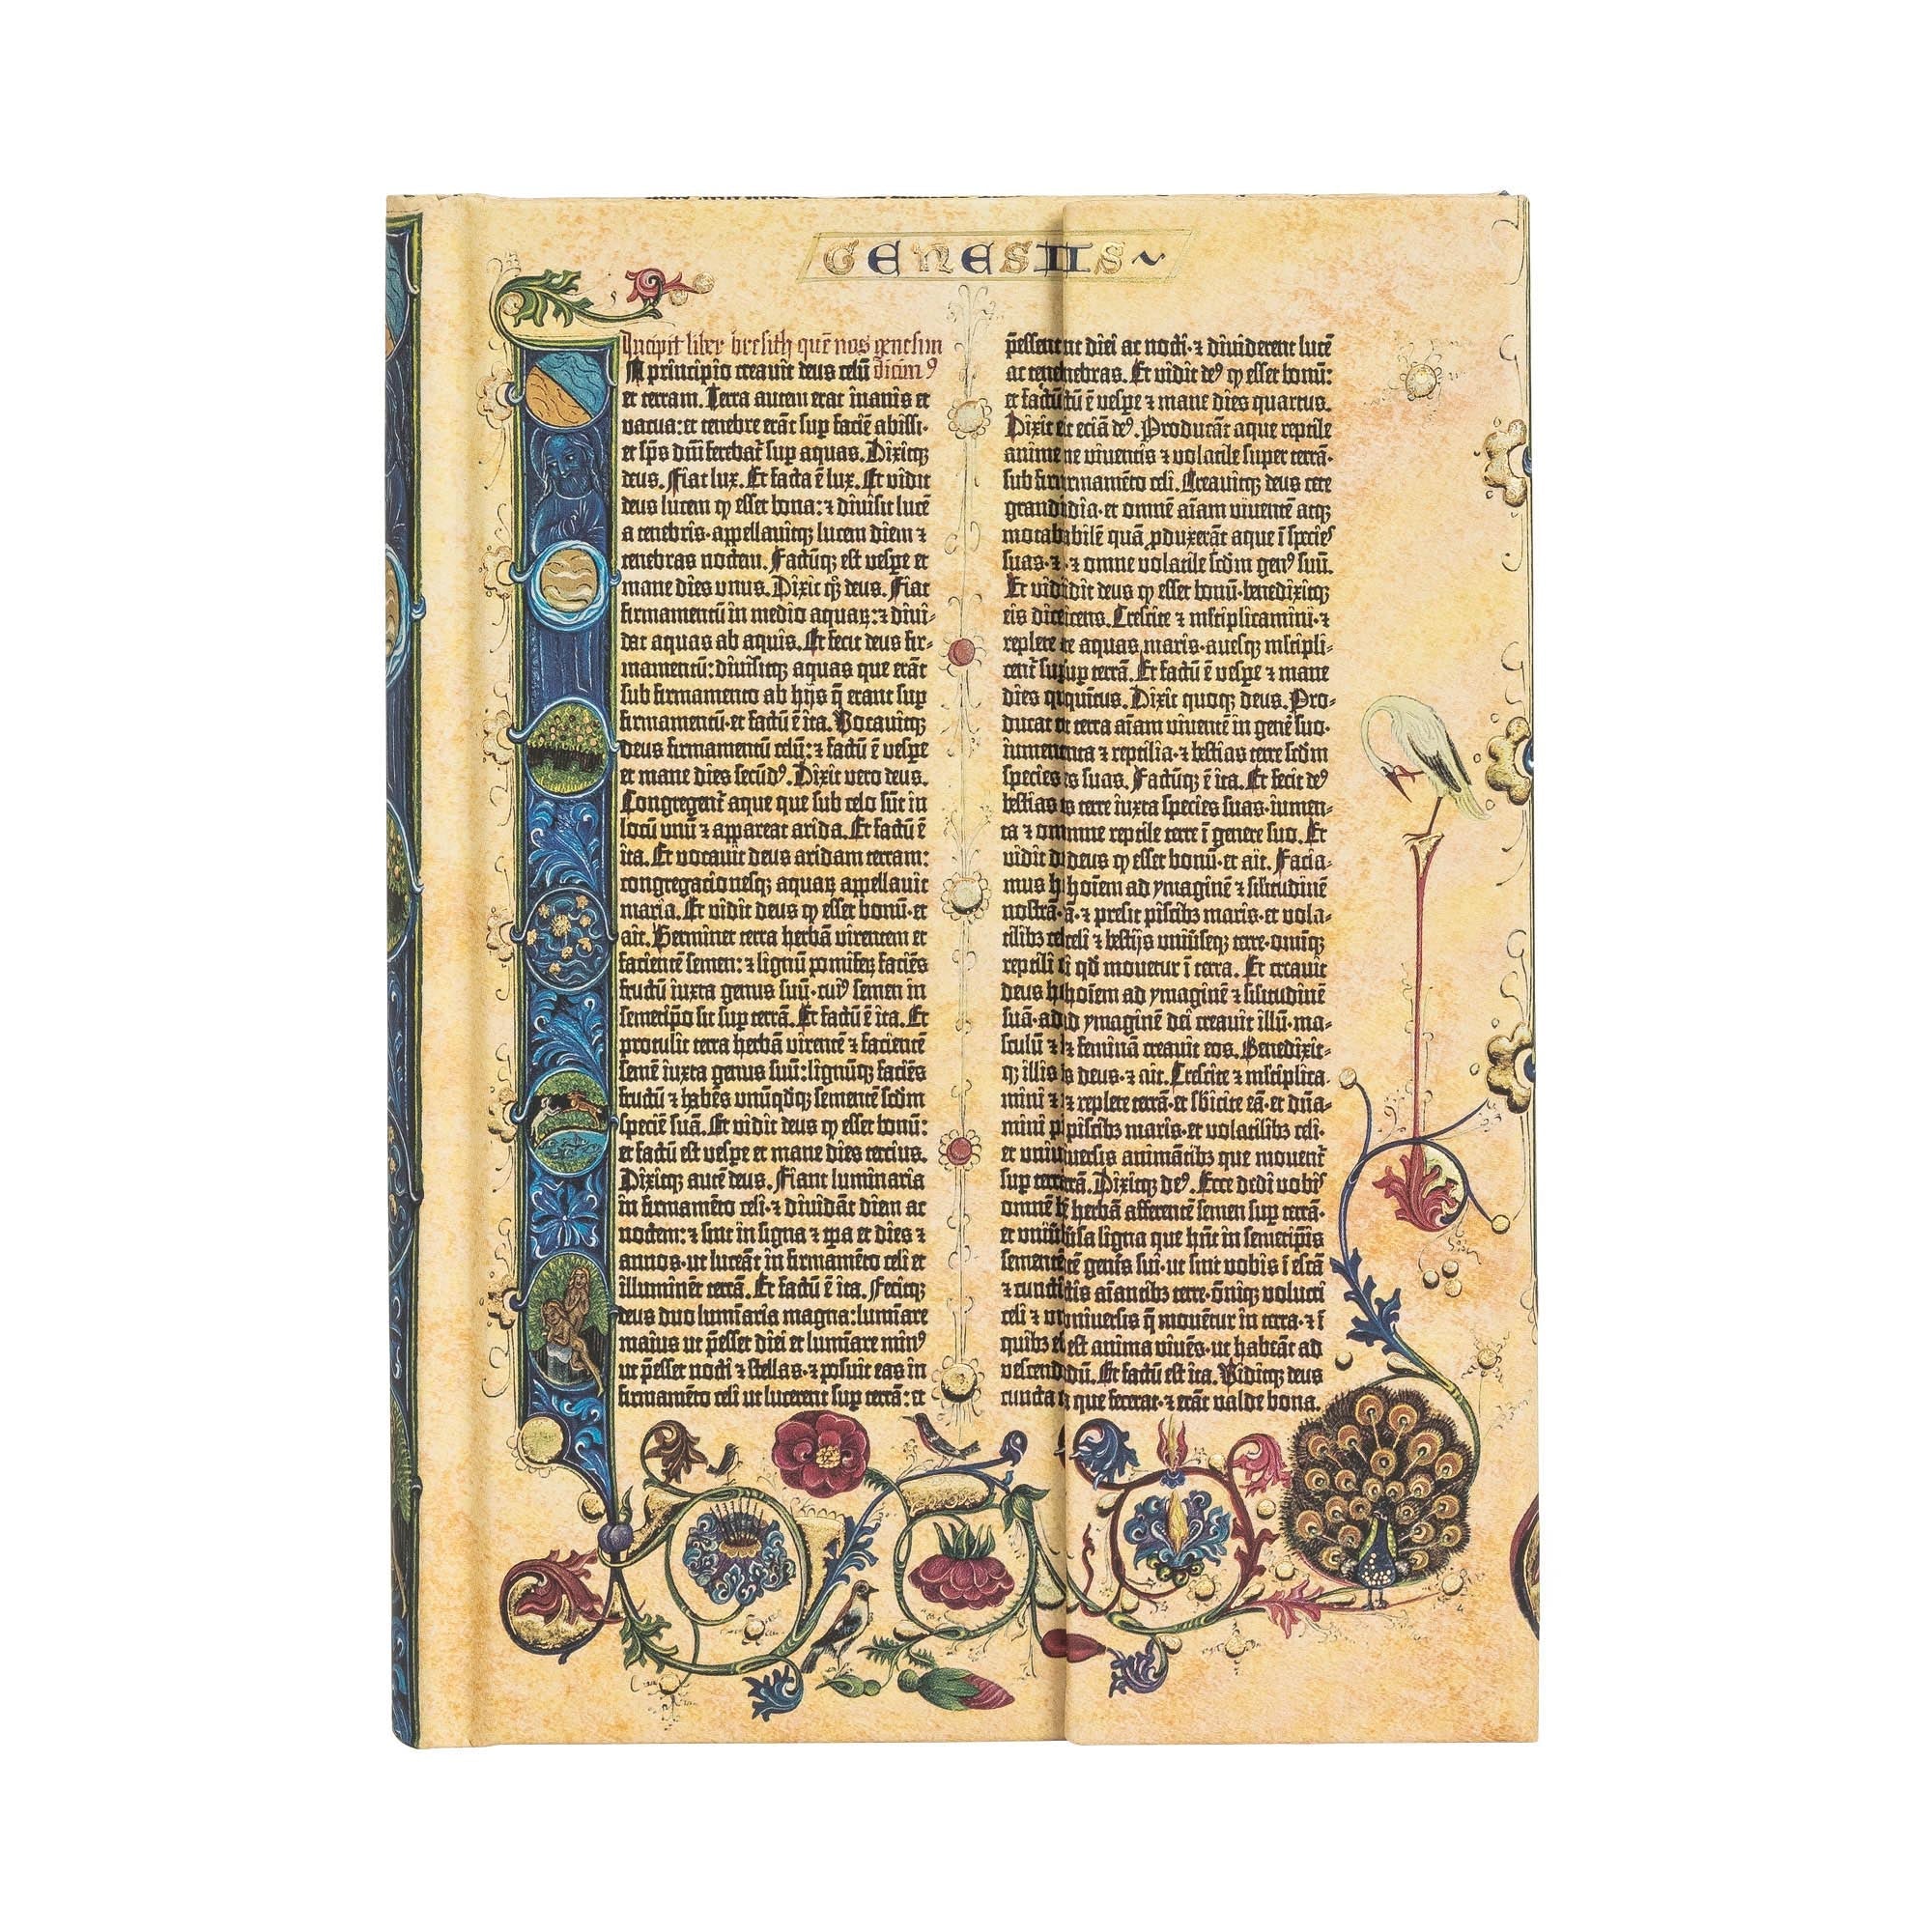 GENESIS
Incipit liber bresith quē nos genesim
In principio creavit deus celū dicim⁹
et terram. Terra autem erat inanis et
vacua: et tenebre erāt sup faciē abissi·
et sp̄s dn̄i ferebat̄ sup aquas. Dixitq̄
deus. Fiat lux. Et facta ē lux. Et vidit
deus lucem ꝙ esset bona: ⁊ divisit lucē
a tenebris· appellavitq̄ lucem diem ⁊
tenebras noctem. Factūq̄ est vesp̄e et
mane dies unus. Dixit qꝫ deus. Fiat
firmamentū in medio aquaꝝ: ⁊ divi-
dat aquas ab aquis. Et fecit deus fir-
mamentū: divisitq̄ aquas que erāt
sub firmamento ab hijs q̄ erant sup
firmamentū· et factū ē ita. Vocavitq̄
deus firmamentū celū: ⁊ factū ē vesp̄e
et mane dies secūd⁹. Dixit vero deus.
Congregent̄ aque que sub celo sūt in
locū unū ⁊ appareat arida. Et factū ē
ita. Et vocavit deus aridam terram:
congregacionesq̄ aquaꝝ appellavit
maria. Et vidit deus ꝙ esset bonū· et
ait. Germinet terra herbā virentem et
facientē semen: ⁊ lignū pomiferꝫ faciēs
fructū iuxta genus suū· cui⁹ semen in
semetip̄o sit sup terrā. Et factū ē ita. Et
protulit terra herbā virentē ⁊ facientē
semē iuxta genus suū: lignūq̄ faciēs
fructū ⁊ habēs unūqdq̄ sementē scd̄m
speciē suā. Et vidit deus ꝙ esset bonū:
et factū est vesp̄e et mane dies tercius.
Dixitq̄ autē deus. Fiant luminaria
in firmamēto celi· ⁊ dividāt diem ac
noctem: ⁊ sint in signa ⁊ tp̄a et dies ⁊
annos· ut luceāt in firmamēto celi et
illuminēt terrā. Et factū ē ita. Fecitq̄
deus duo luminaria magna: lumīare
maius ut p̄esset diei et lumīare min⁹
ut p̄esset nocti ⁊ stellas· ⁊ posuit eas in
firmamēto celi ut lucerent sup terrā: et
p̄essent ut diei ac nocti· ⁊ dividerent lucē
ac tenebras. Et vidit de⁹ ꝙ esset bonū:
et factū ē vesp̄e ⁊ mane dies quartus.
Dixit eciā de⁹. Producāt aque reptile
anime viventis ⁊ volatile super terrā·
sub firmamēto celi. Creavitq̄ deus cete
grandia· et omnē aīam viventē atq̄
motabilē quā ꝓduxerāt aque ī species
suas· ⁊ omne volatile scd̄m gen⁹ suū.
Et vidit deus ꝙ esset bonū· benedixitq̄
eis dicens. Crescite ⁊ ml̄tiplicamini· ⁊
replete aquas maris· avesq̄ ml̄tipli-
cent̄ sup terrā. Et factū ē vesp̄e ⁊ mane
dies quītus. Dixit quoq̄ deus. Pro-
ducat terra aīam viventē in genē suo·
iumenta ⁊ reptilia· ⁊ bestias terre scd̄m
species suas. Factūq̄ ē ita. Et fecit de⁹
bestias terre iuxta species suas· iumen-
ta ⁊ omne reptile terre ī genere suo. Et
vidit deus ꝙ esset bonū· et ait. Facia-
mus hoīem ad ymaginē ⁊ sil̄itudinē
nostrā· ⁊ presit piscibꝫ maris· et vola-
tilibꝫ celi ⁊ bestijs univ̄seq̄ terre· omniq̄
reptili qd̄ movetur ī terra. Et creavit
deus hoīem ad ymaginē ⁊ sil̄itudinē
suā· ad ymaginē dei creavit illū· ma-
sculū ⁊ feminā creavit eos. Benedixit-
q̄ illis deus· ⁊ ait. Crescite ⁊ ml̄tiplica-
mini ⁊ replete terrā· et sbicite eā· et dn̄a-
mini piscibꝫ maris· et volatilibꝫ celi·
et universis animātibꝫ que movent̄
sup terrā. Dixitq̄ de⁹. Ecce dedi vobis
omnē herbā afferentē semen sup terrā·
et univ̄sa ligna que hn̄t in semetip̄is
sementē gen̄is sui· ut sint vobis ī escā
⁊ cunctis aīantibꝫ terre· ōniq̄ volucri
celi ⁊ universis q̄ movētur in terra· ⁊ ī
quibꝫ est anima vivēs· ut habeāt ad
vescendū. Et factū est ita. Viditq̄ deus
cuncta que fecerat· ⁊ erāt valde bona.